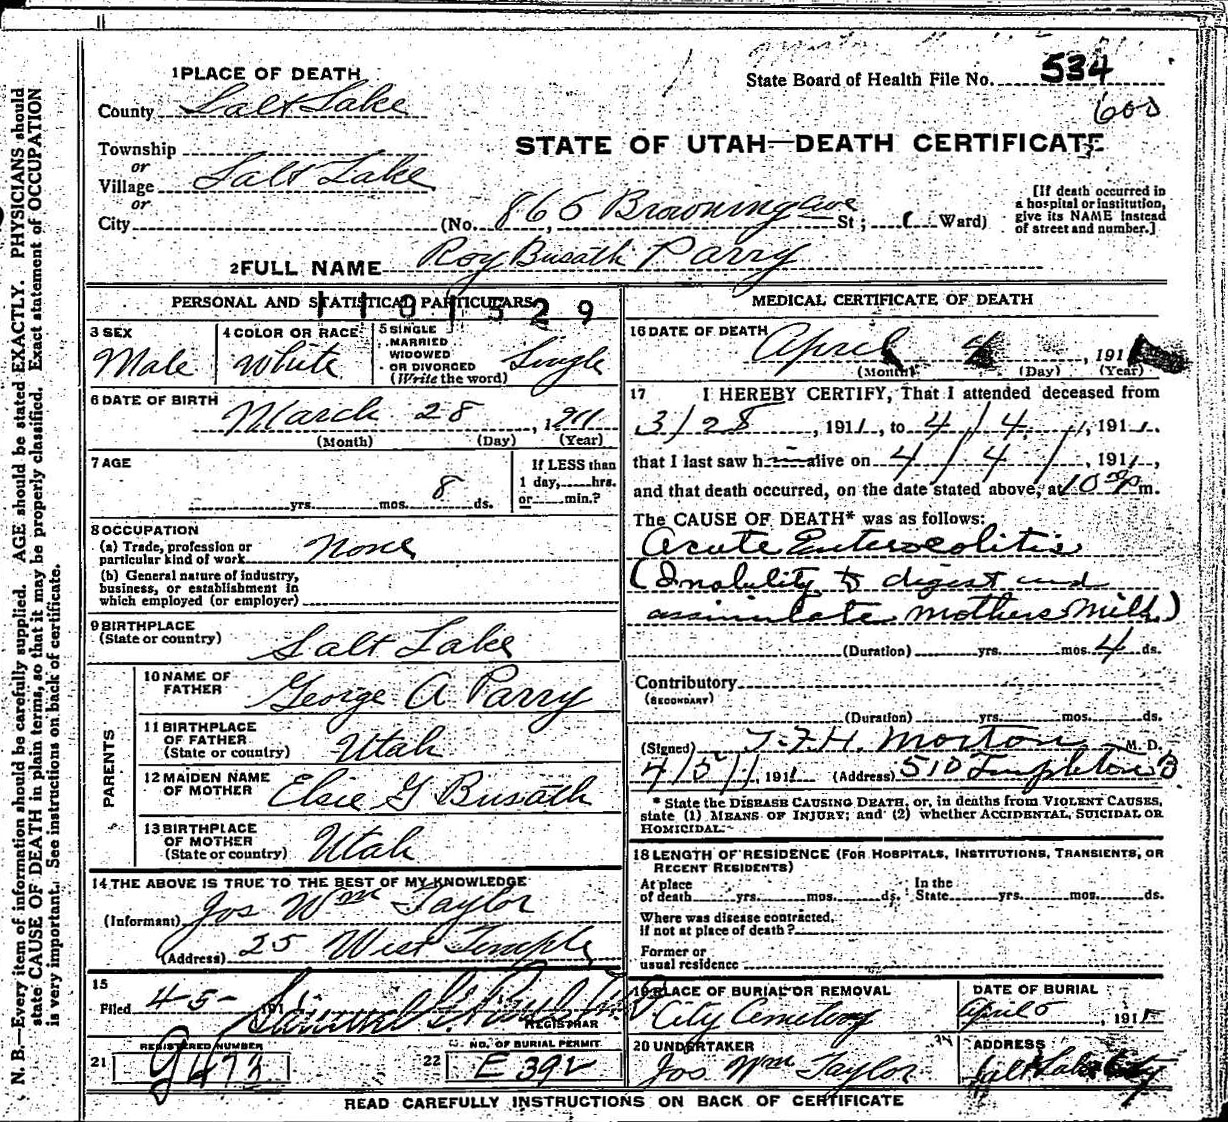 N. B.—Every item of information should be carefully supplied. AGE should be stated EXACTLY. PHYSICIANS should
state CAUSE OF DEATH in plain terms, so that it may be properly classified. Exact statement of OCCUPATION
is very important. See instructions on back of certificate.
State Board of Health File No. 534
600
1 PLACE OF DEATH
County Salt Lake
STATE OF UTAH—DEATH CERTIFICATE
Township
or
Village Salt Lake
or
City (No. 865 Browning Ave St ; Ward)
[If death occurred in
a hospital or institution,
give its NAME instead
of street and number.]
2 FULL NAME Roy Busath Parry
PERSONAL AND STATISTICAL PARTICULARS
29
3 SEX
Male
4 COLOR OR RACE
White
5 SINGLE
MARRIED
WIDOWED
OR DIVORCED
(Write the word)
Single
6 DATE OF BIRTH
March 28, 1911
(Month) (Day) (Year)
7 AGE
yrs. mos. 8 ds.
If LESS than
1 day, hrs.
or min.?
8 OCCUPATION
(a) Trade, profession or
particular kind of work None
(b) General nature of industry,
business, or establishment in
which employed (or employer)
9 BIRTHPLACE
(State or country) Salt Lake
PARENTS
10 NAME OF
FATHER George A Parry
11 BIRTHPLACE
OF FATHER
(State or country) Utah
12 MAIDEN NAME
OF MOTHER Elsie G Busath
13 BIRTHPLACE
OF MOTHER
(State or country) Utah
14 THE ABOVE IS TRUE TO THE BEST OF MY KNOWLEDGE
(Informant) Jos Wm Taylor
(Address) 25 West Temple
15
Filed 4-5-
REGISTRAR
21 REGISTERED NUMBER
G473
22 NO. OF BURIAL PERMIT
E 392
MEDICAL CERTIFICATE OF DEATH
16 DATE OF DEATH
April 4, 191
(Month) (Day) (Year)
17 I HEREBY CERTIFY, That I attended deceased from
3/28, 1911, to 4/4/, 1911.
that I last saw h alive on 4/4/, 1911,
and that death occurred, on the date stated above, at 10 P m.
The CAUSE OF DEATH* was as follows:
Acute Enterocolitis
(Inability to digest and
assimilate mothers milk)
(Duration) yrs. mos. 4 ds.
Contributory
(SECONDARY)
(Duration) yrs. mos. ds.
(Signed) T.F.H. Morton M. D.
4/5/11, 1911 (Address) 510 Templeton B
* State the DISEASE CAUSING DEATH, or, in deaths from VIOLENT CAUSES,
state (1) MEANS OF INJURY; and (2) whether ACCIDENTAL, SUICIDAL OR
HOMICIDAL.
18 LENGTH OF RESIDENCE (FOR HOSPITALS, INSTITUTIONS, TRANSIENTS, OR
RECENT RESIDENTS)
At place
of death yrs. mos. ds.
In the
State yrs. mos. ds.
Where was disease contracted,
if not at place of death?
Former or
usual residence
19 PLACE OF BURIAL OR REMOVAL
City Cemetery
DATE OF BURIAL
April 5, 191
20 UNDERTAKER
Jos Wm Taylor
ADDRESS
Salt Lake City
READ CAREFULLY INSTRUCTIONS ON BACK OF CERTIFICATE